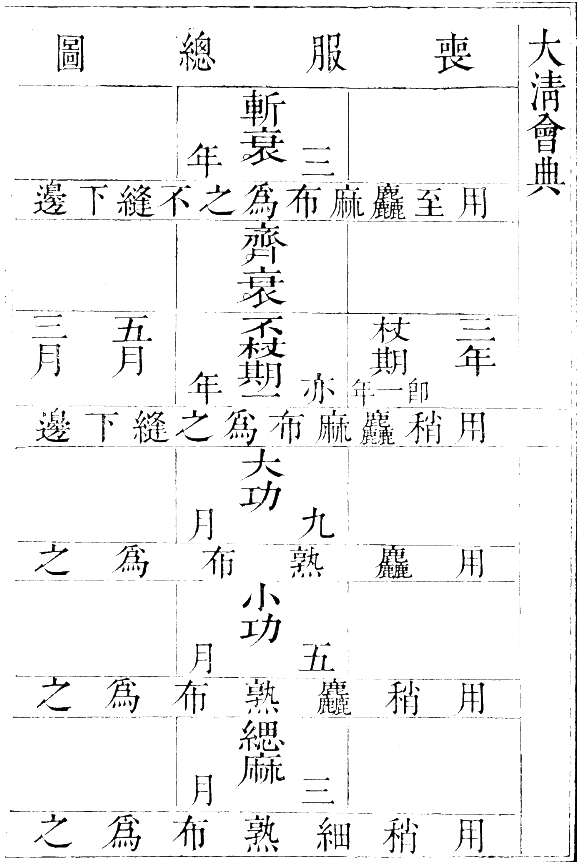 大清會典
喪服總圖
斬衰
三年
用至麤麻布爲之不縫下邊
齊衰
三年
杖期
即一年
不杖期
亦一年
五月
三月
用稍麤麻布爲之縫下邊
大功
九月
用麤熟布爲之
小功
五月
用稍麤熟布爲之
緦麻
三月
用稍細熟布爲之